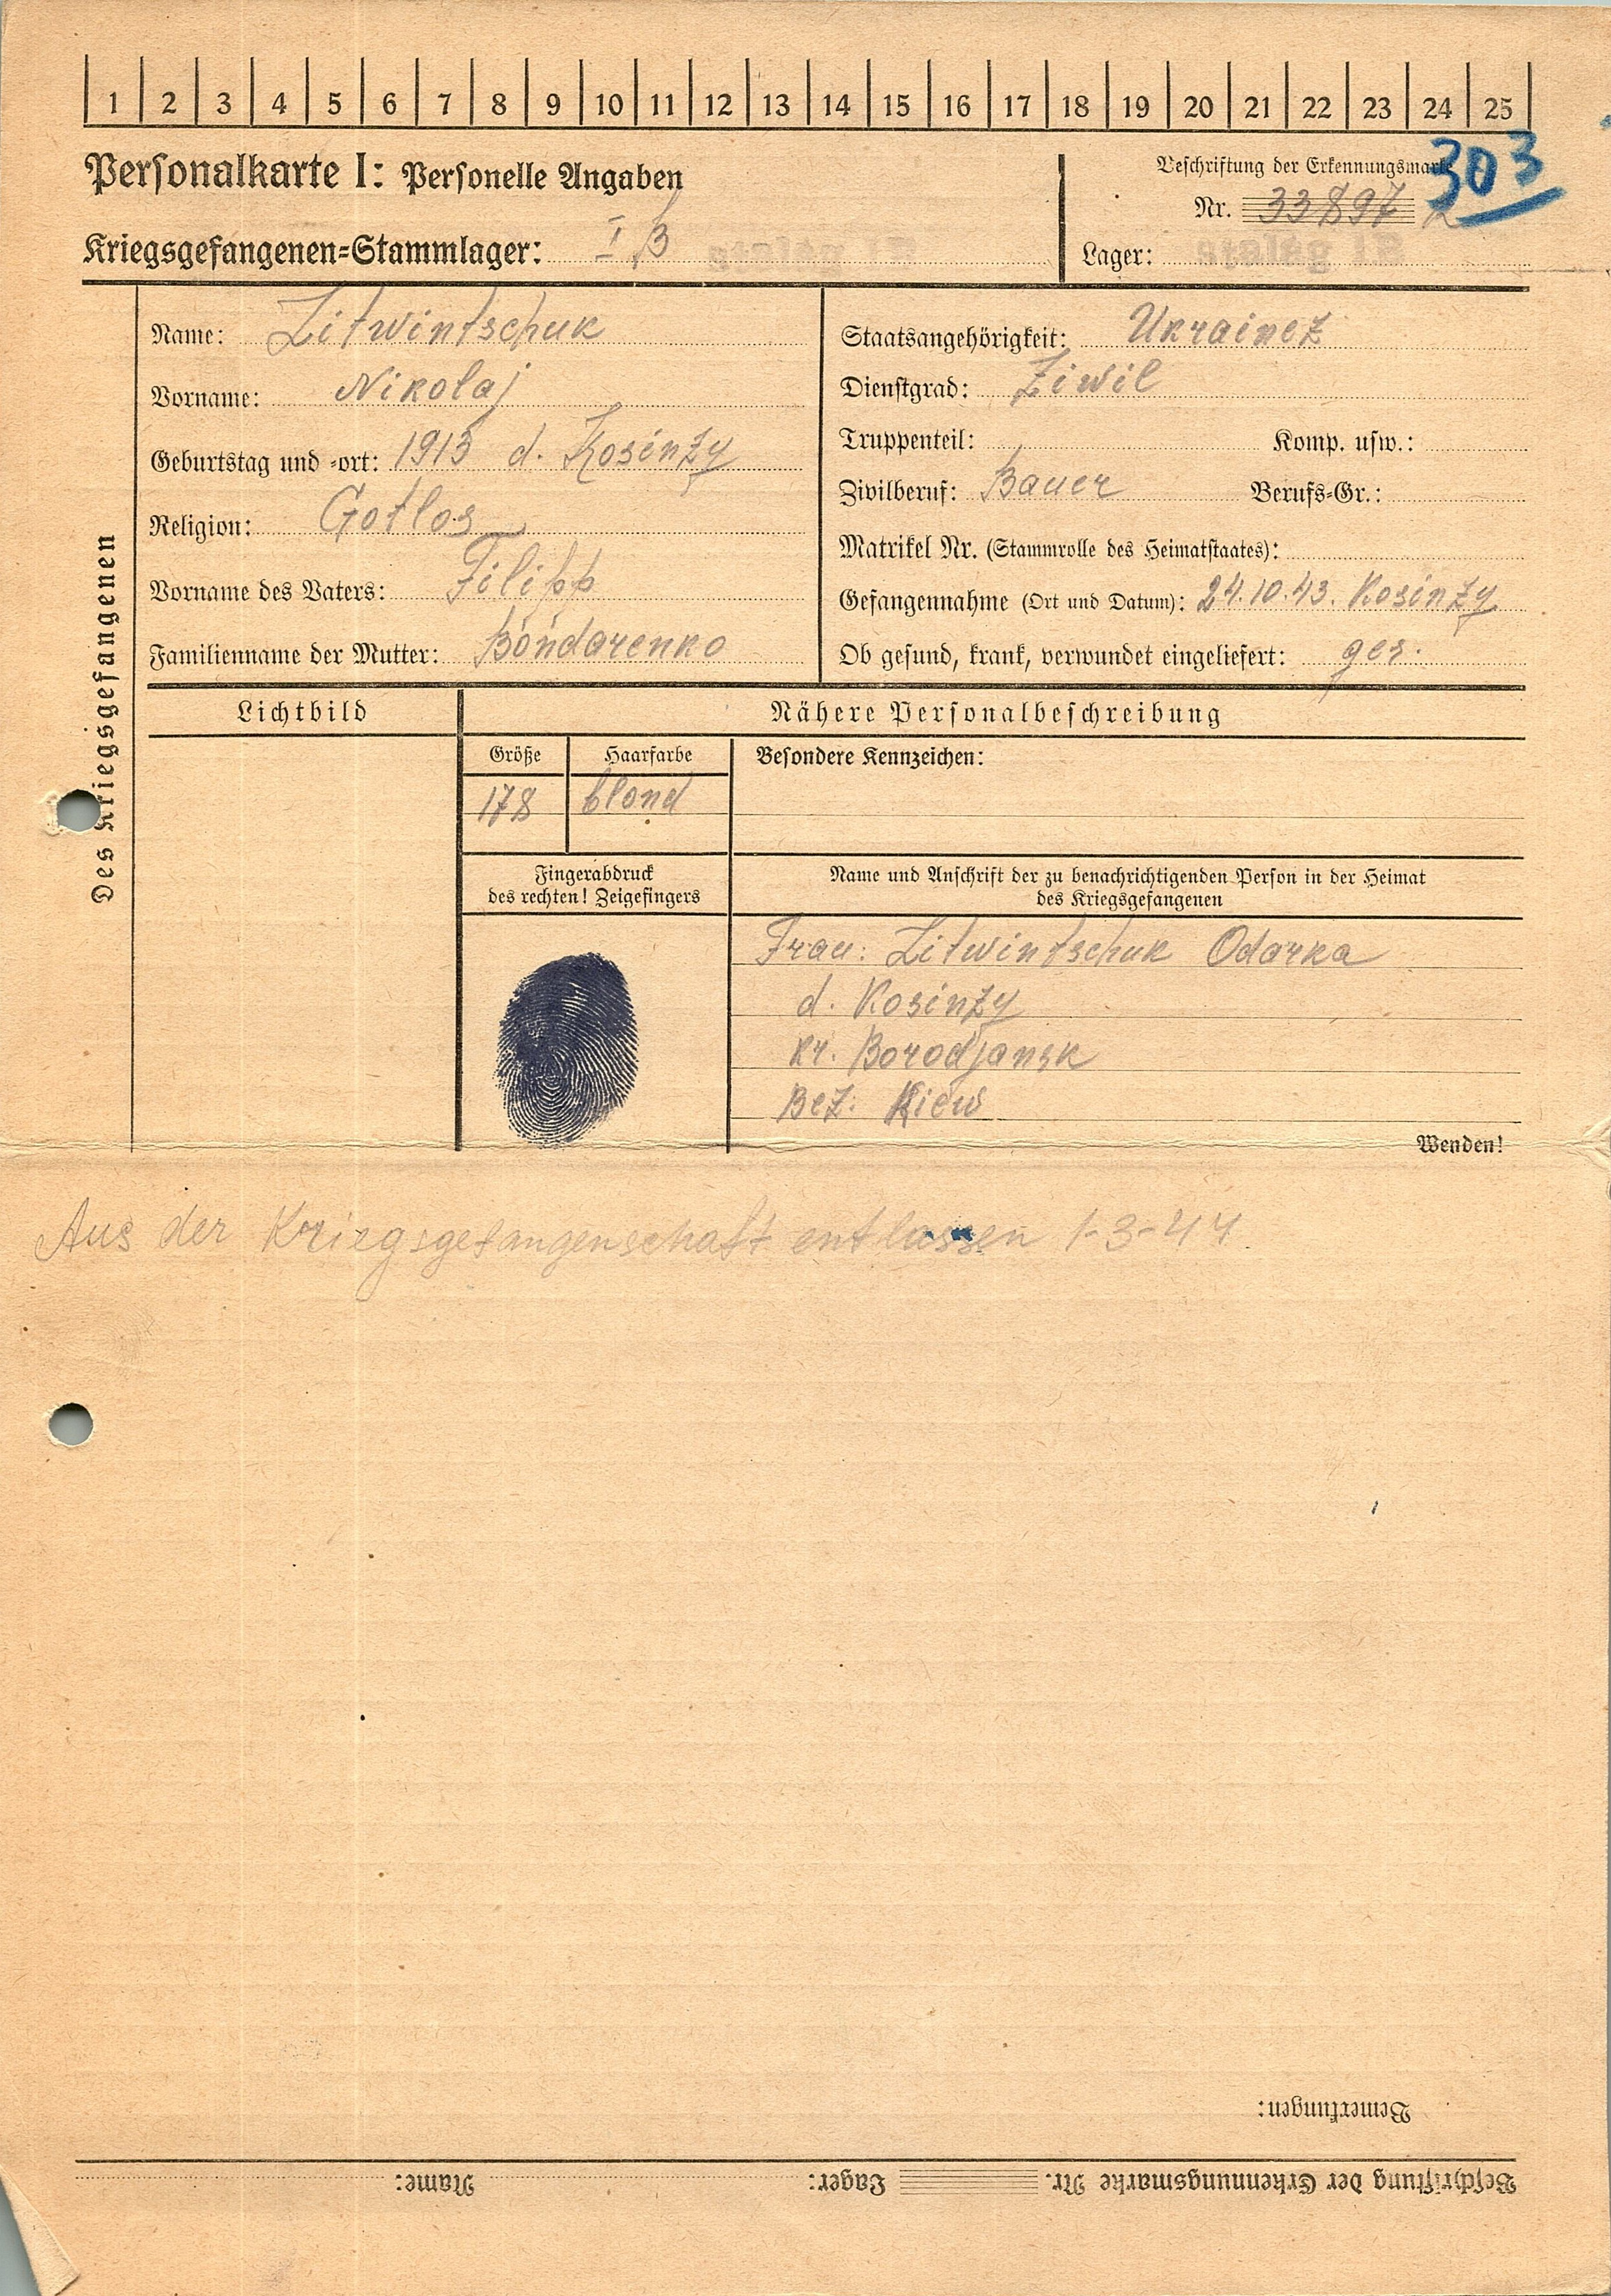 1 2 3 4 5 6 7 8 9 10 11 12 13 14 15 16 17 18 19 20 21 22 23 24 25
Personalkarte I: Personelle Angaben
Kriegsgefangenen-Stammlager: I B
Beschriftung der Erkennungsmarke
303
Nr. 33897
Lager: Stalag IB
Des Kriegsgefangenen
Name: Litwintschuk
Vorname: Nikolaj
Geburtstag und -ort: 1913 d. Kosinzy
Religion: Gotlos
Vorname des Vaters: Filipp
Familienname der Mutter: Bondarenko
Staatsangehörigkeit: Ukrainez
Dienstgrad: Ziwil
Truppenteil: Komp. usw.:
Zivilberuf: Bauer Berufs-Gr.:
Matrikel Nr. (Stammrolle des Heimatstaates):
Gefangennahme (Ort und Datum): 24.10.43. Kosinzy
Ob gesund, krank, verwundet eingeliefert: ges.
Lichtbild
Nähere Personalbeschreibung
Größe Haarfarbe
178 blond
Besondere Kennzeichen:
Fingerabdruck
des rechten! Zeigefingers
Name und Anschrift der zu benachrichtigenden Person in der Heimat
des Kriegsgefangenen
Frau: Litwintschuk Odarka
d. Kosinzy
kr. Borodjansk
Bez. Kiew
Wenden!
Aus der Kriegsgefangenschaft entlassen 1-3-44
Bemerkungen:
Beschriftung der Erkennungsmarke Nr. Lager: Name: